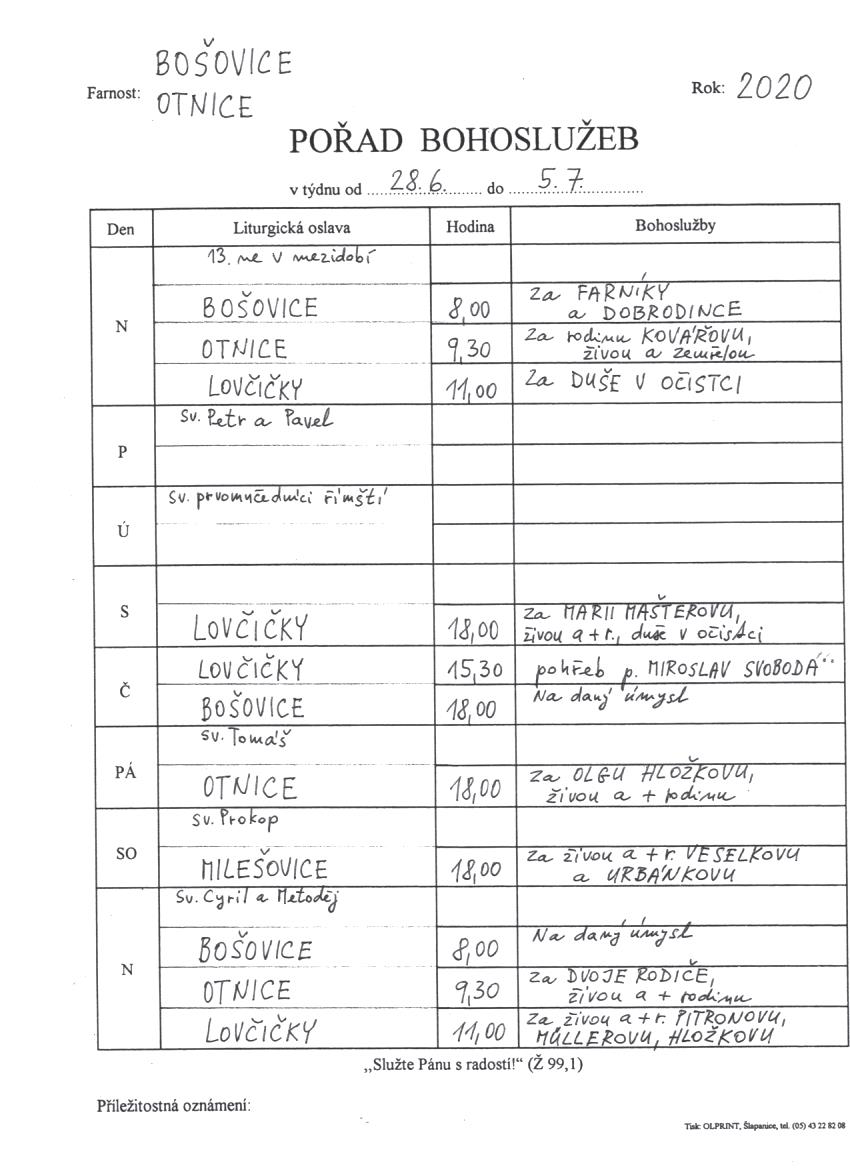 Farnost: BOŠOVICE
OTNICE
Rok: 2020
POŘAD BOHOSLUŽEB
v týdnu od 28.6. do 5.7.
Den Liturgická oslava Hodina Bohoslužby
N
13. ne v mezidobí
BOŠOVICE 8,00 za FARNÍKY
a DOBRODINCE
OTNICE 9,30 za rodinu KOVÁŘOVU,
živou a zemřelou
LOVČIČKY 11,00 za DUŠE V OČISTCI
P
sv. Petr a Pavel
Ú
sv. prvomučedníci římští
S
LOVČIČKY 18,00 za MARII MAŠTEROVU,
živou a + r., duše v očistci
Č
LOVČIČKY 15,30 pohřeb p. MIROSLAV SVOBODA
BOŠOVICE 18,00 Na daný úmysl
PÁ
sv. Tomáš
OTNICE 18,00 za OLGU HLOŽKOVU,
živou a + rodinu
SO
sv. Prokop
MILEŠOVICE 18,00 za živou a + r. VESELKOVU
a URBÁNKOVU
N
sv. Cyril a Metoděj
BOŠOVICE 8,00 Na daný úmysl
OTNICE 9,30 za DVOJE RODIČE,
živou a + rodinu
LOVČIČKY 11,00 za živou a + r. PITRONOVU,
MÜLLEROVU, HLOŽKOVU
„Služte Pánu s radostí!“ (Ž 99,1)
Příležitostná oznámení:
Tisk: OLPRINT, Šlapanice, tel. (05) 43 22 82 08